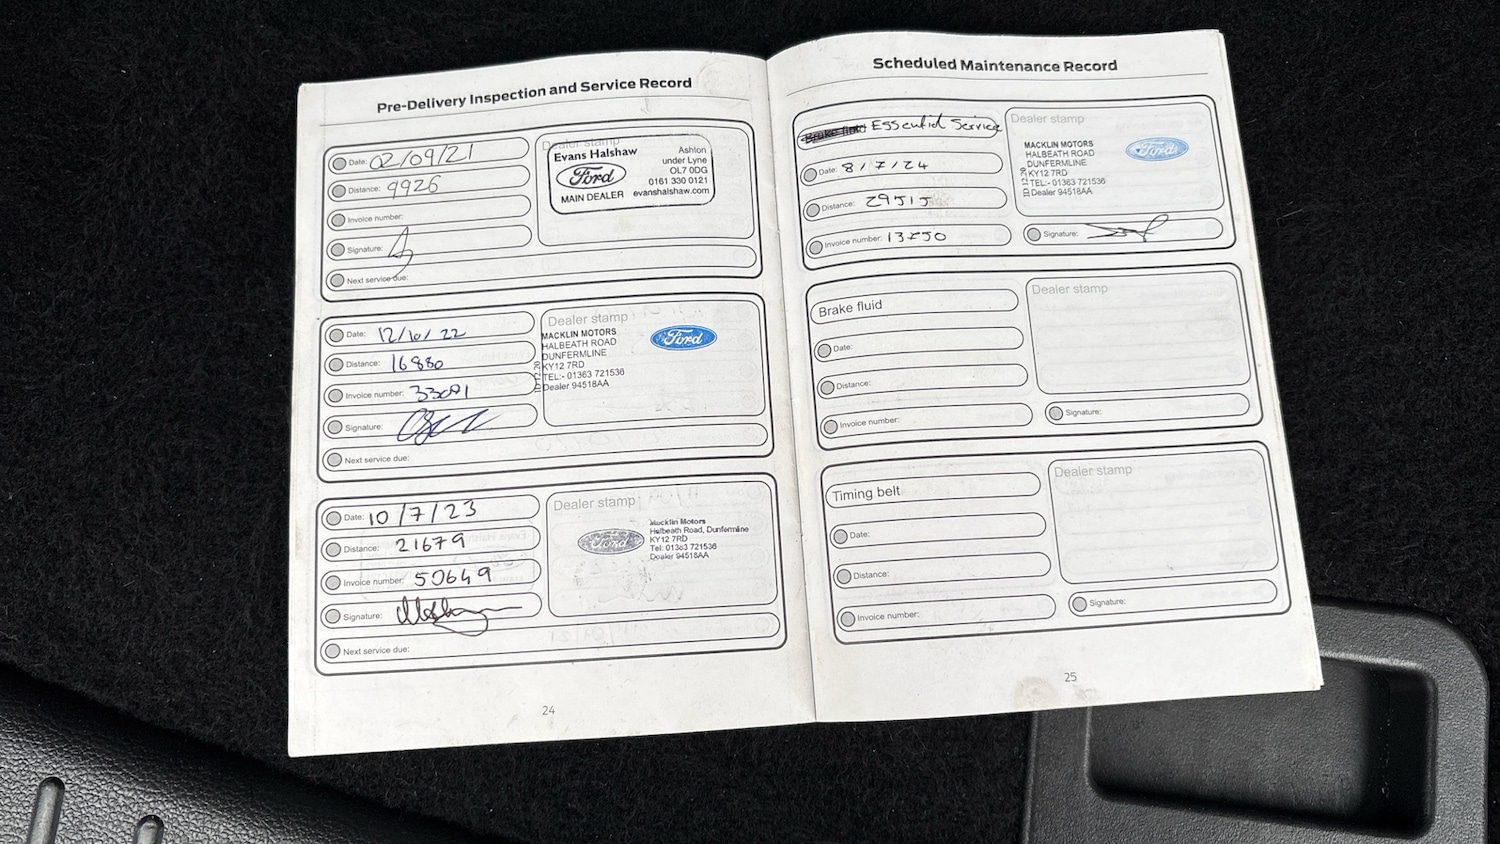 Pre-Delivery Inspection and Service Record
Date: 02/09/21
Distance: 9926
Invoice number:
Signature:
Next service due:
Dealer stamp
Evans Halshaw
Ford
MAIN DEALER
Ashton
under Lyne
OL7 0DG
0161 330 0121
evanshalshaw.com
Date: 12/10/22
Distance: 16880
Invoice number: 33091
Signature:
Next service due:
Dealer stamp
MACKLIN MOTORS
HALBEATH ROAD
DUNFERMLINE
KY12 7RD
TEL:- 01383 721536
Dealer 94518AA
Ford
Date: 10/7/23
Distance: 21679
Invoice number: 50649
Signature:
Next service due:
Dealer stamp
Ford
Macklin Motors
Halbeath Road, Dunfermline
KY12 7RD
Tel: 01383 721536
Dealer 94518AA
24
Scheduled Maintenance Record
Brake fluid Essential Service
Date: 8/7/24
Distance: 29515
Invoice number: 13750
Dealer stamp
MACKLIN MOTORS
HALBEATH ROAD
DUNFERMLINE
KY12 7RD
TEL:- 01383 721536
Dealer 94518AA
Ford
Signature:
Brake fluid
Date:
Distance:
Invoice number:
Dealer stamp
Signature:
Timing belt
Date:
Distance:
Invoice number:
Dealer stamp
Signature:
25